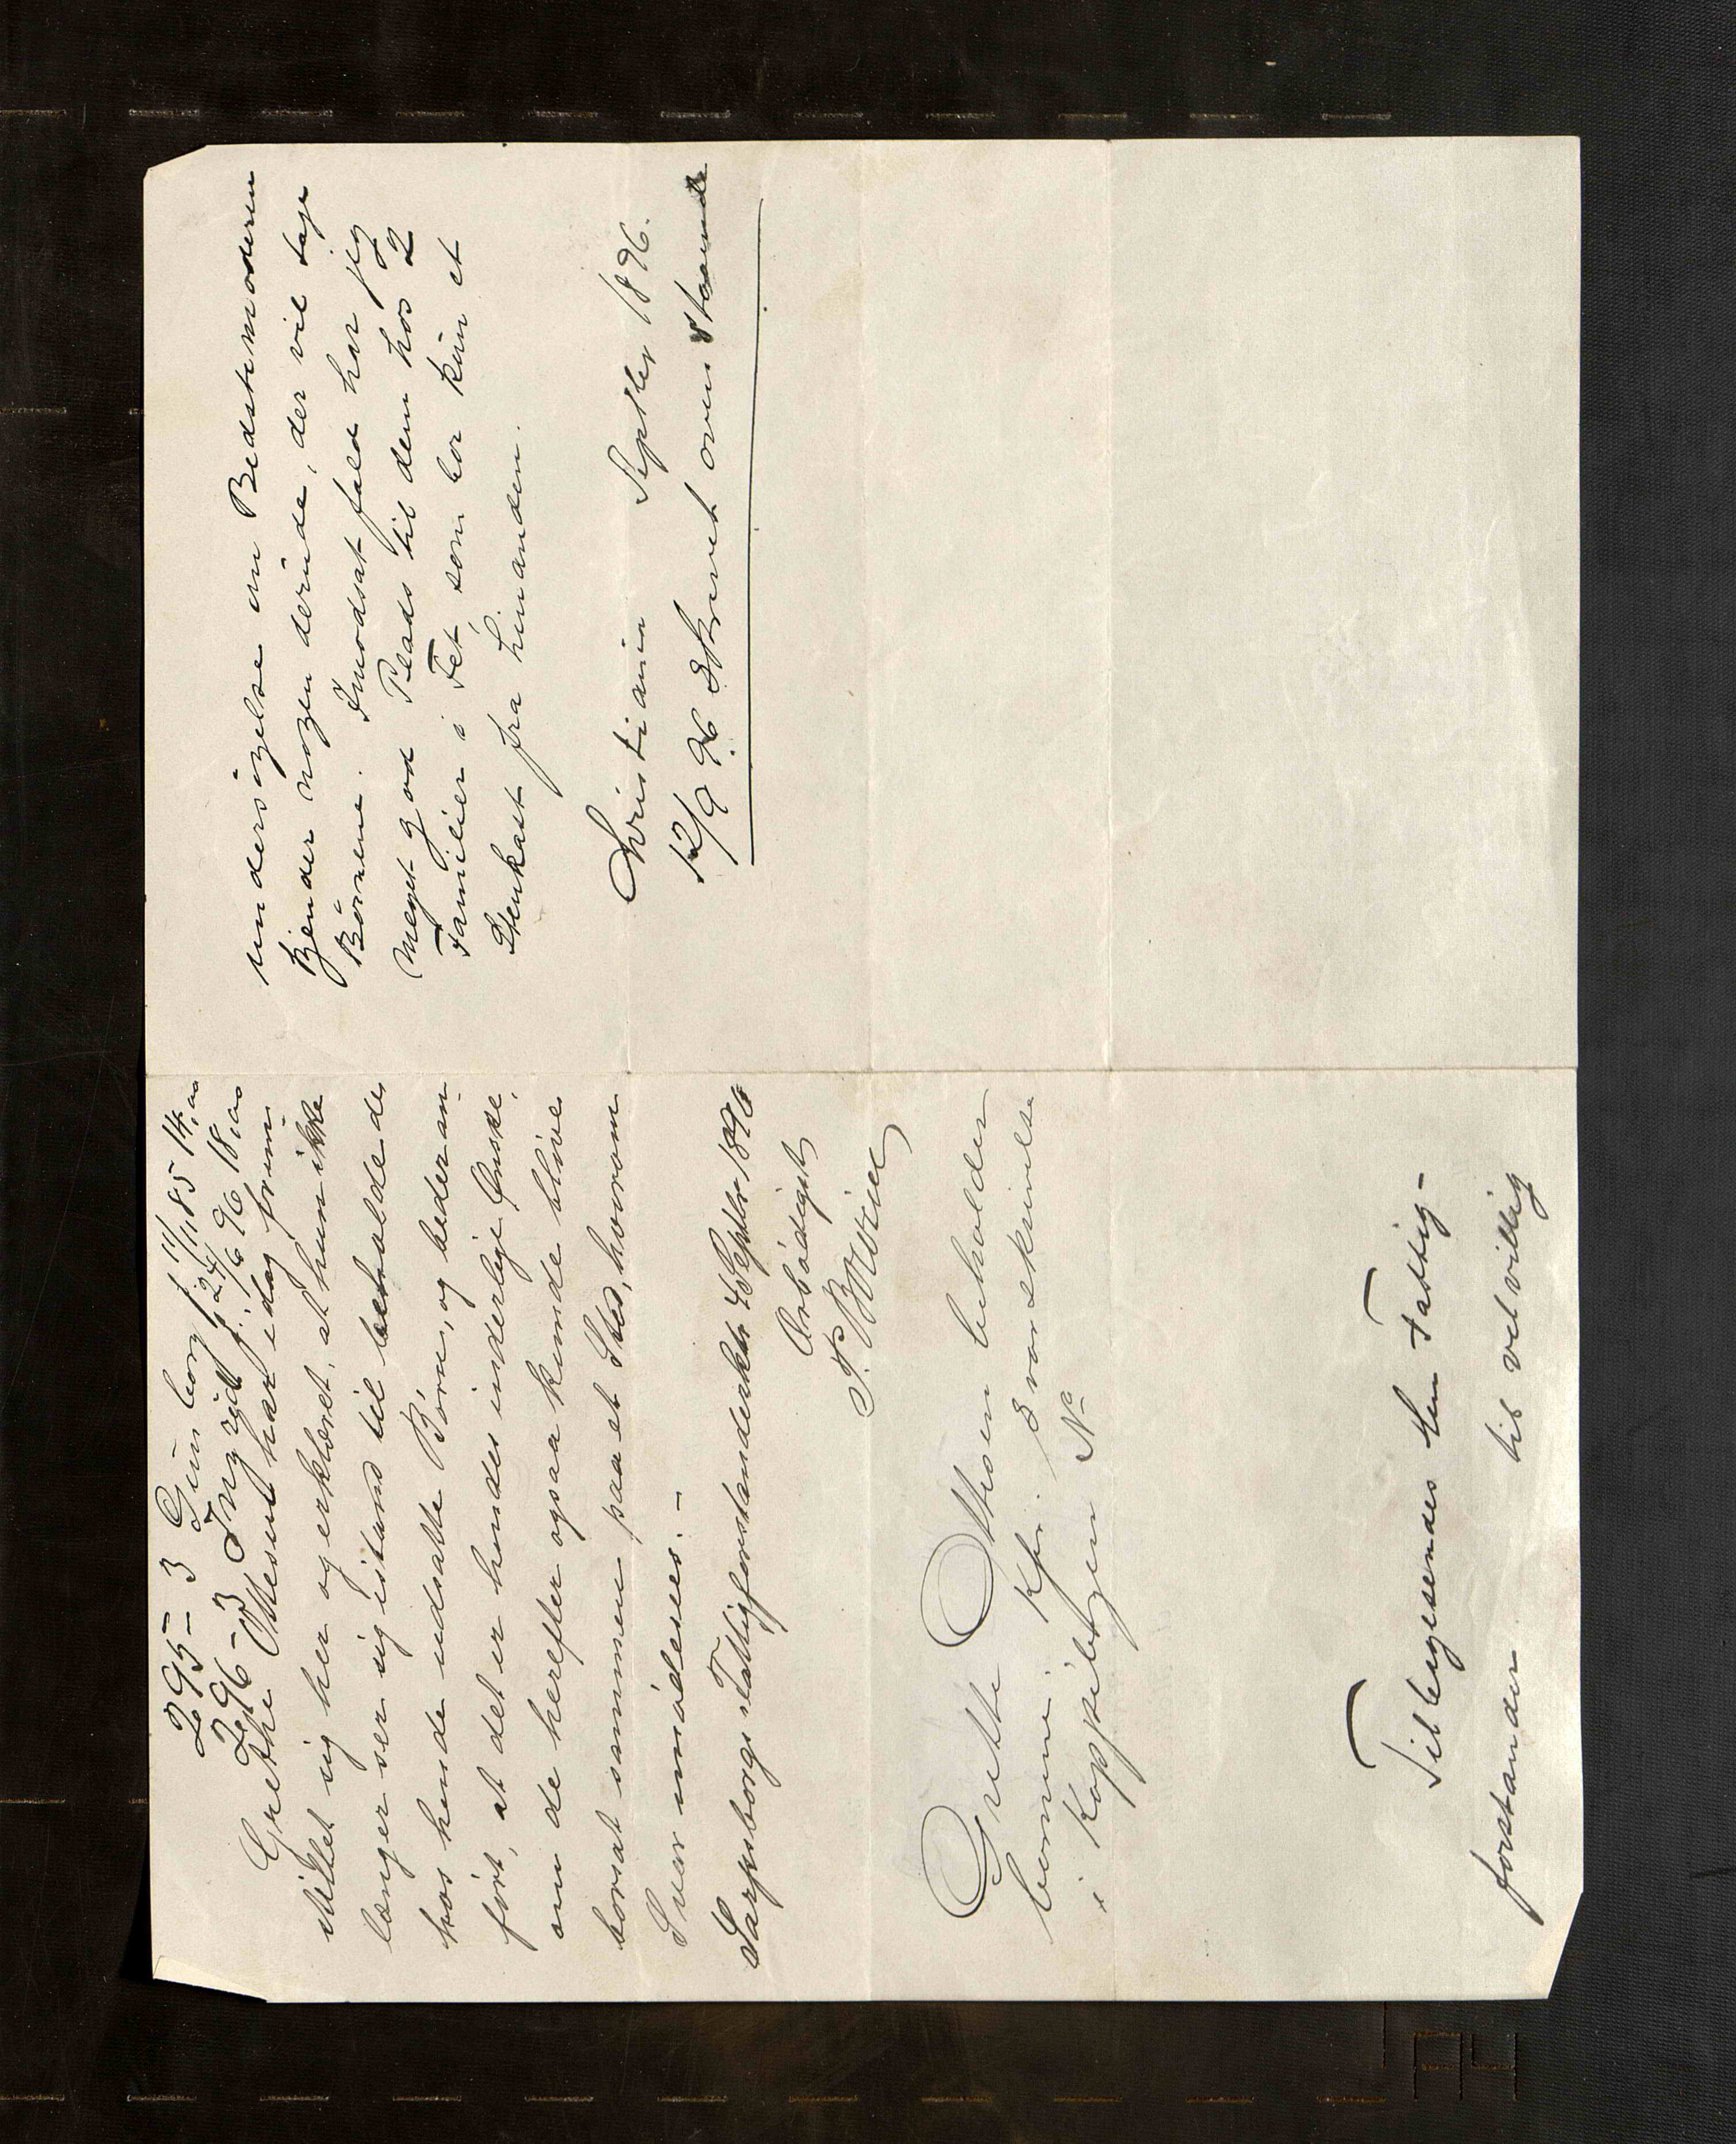 295 – 3 Gunborg f. 11/1 85 14,00
296 – 3 Ingrid f. 24/6 96 18,00
Grethe Olesen har idag frem-
stillet sig her og erklæret, at hun ikke
længer ser sig istand til beholde de
hos hende udsatte Børn, og bederan-
ført, at det er hendes inderlige Ønske,
om de herefter ogsaa kunde blive
borsat sammen paa et Sted, hvorom
Svar imødesees. –
Sarpsborgs Fattigforstanderktr 4 Septbr 1896
Ærbødigst
Grethe Olsen beholder
børnene. Kfr. skrivelse
i Koppibogen No
Tilbagesendes Hr. Fattig-
forstander til velvillig
undersøgelse om Bedstemoderen
kjender nogen derinde, der vil tage
Børnene. I modsat fald har jeg
meget god Plads til dem hos 2
Familier i Fet, som bor kun et
Stenkast fra hinanden.
Christiania Septbr 1896.
12/9 96 Skrevet ovenstaaende